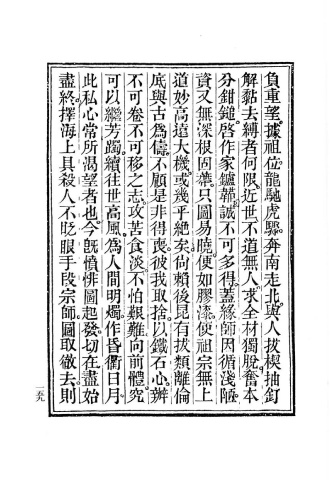 負重望。據祖位。龍馳虎驟。奔南走北。與人拔楔抽釘
解黏去縛者何限。近世不道無人。求全材獨脫。奮本
分鉗鎚。啓作家鑪鞴。誠不可多得。蓋緣師因循淺陋
資又無深根固蔕。只圖易曉。便如膠漆。便祖宗無上
道妙高遠大機。或幾乎絶矣。尚賴後昆有拔類離倫
底。與古爲儔。不顧是非得喪。彼我取捨。以鐵石心。辦
不可卷不可移之志。攻苦食淡。不怕艱難。向前體究
可以繼芳躅。續往世高風。爲人間明燭。作昏衢日月。
此私心常所渴望者也。今旣憤悱圖起發。切在盡始
盡終。擇海上具殺人不眨眼手段宗師。圖取徹去。則
一五九